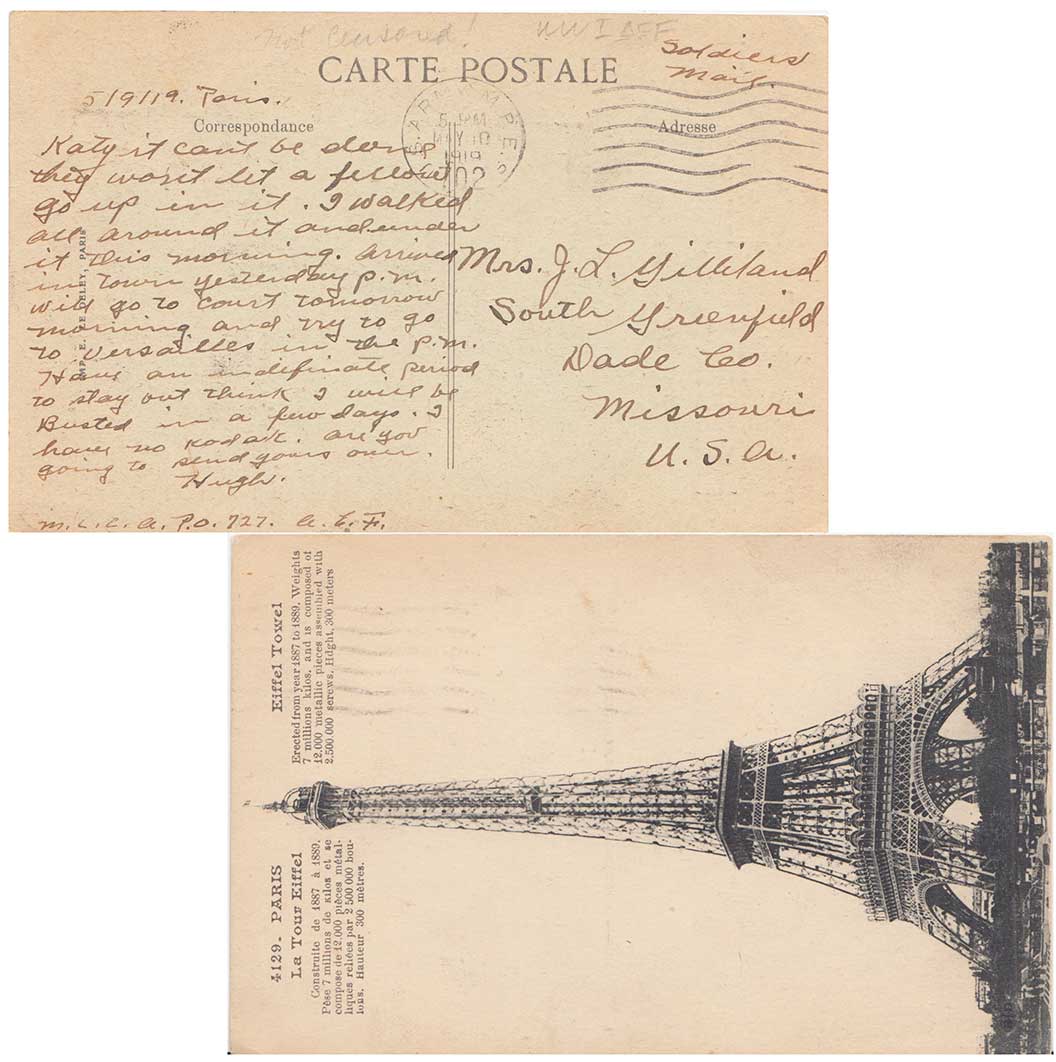 Not Censored! WWI AEF
Soldiers
Mail.
CARTE POSTALE
5/9/19. Paris.
Correspondance
Adresse
U.S. ARMY M.P.E.S.
5 PM
MAY 10
1919
702
Katy it can't be done
they won't let a fellow
go up in it. I walked
all around it and under
it this morning. Arrived
in town yesterday p.m.
will go to court tomorrow
morning and try to go
to Versailles in the p.m.
Have an indefinate period
to stay but think I will be
Busted in a few days. I
have no Kodak. are you
going to send yours over.
Hugh.
M.C.C. A.P.O. 727. A.E.F.
Mrs. J. L. Gilliland
South Greenfield
Dade Co.
Missouri
U. S. A.
IMP. E. DELEY, PARIS
Eiffel Towel
Erected from year 1887 to 1889. Weights
7 millions kilos, and is composed of
12.000 metallic pieces assembied with
2.500.000 serews. Hdght, 300 meters
4129. PARIS
La Tour Eiffel
Construite de 1887 à 1889.
Pèse 7 millions de kilos et se
compose de 12.000 pièces métal-
liques reliées par 2 500.000 bou-
lons. Hauteur 300 mètres.